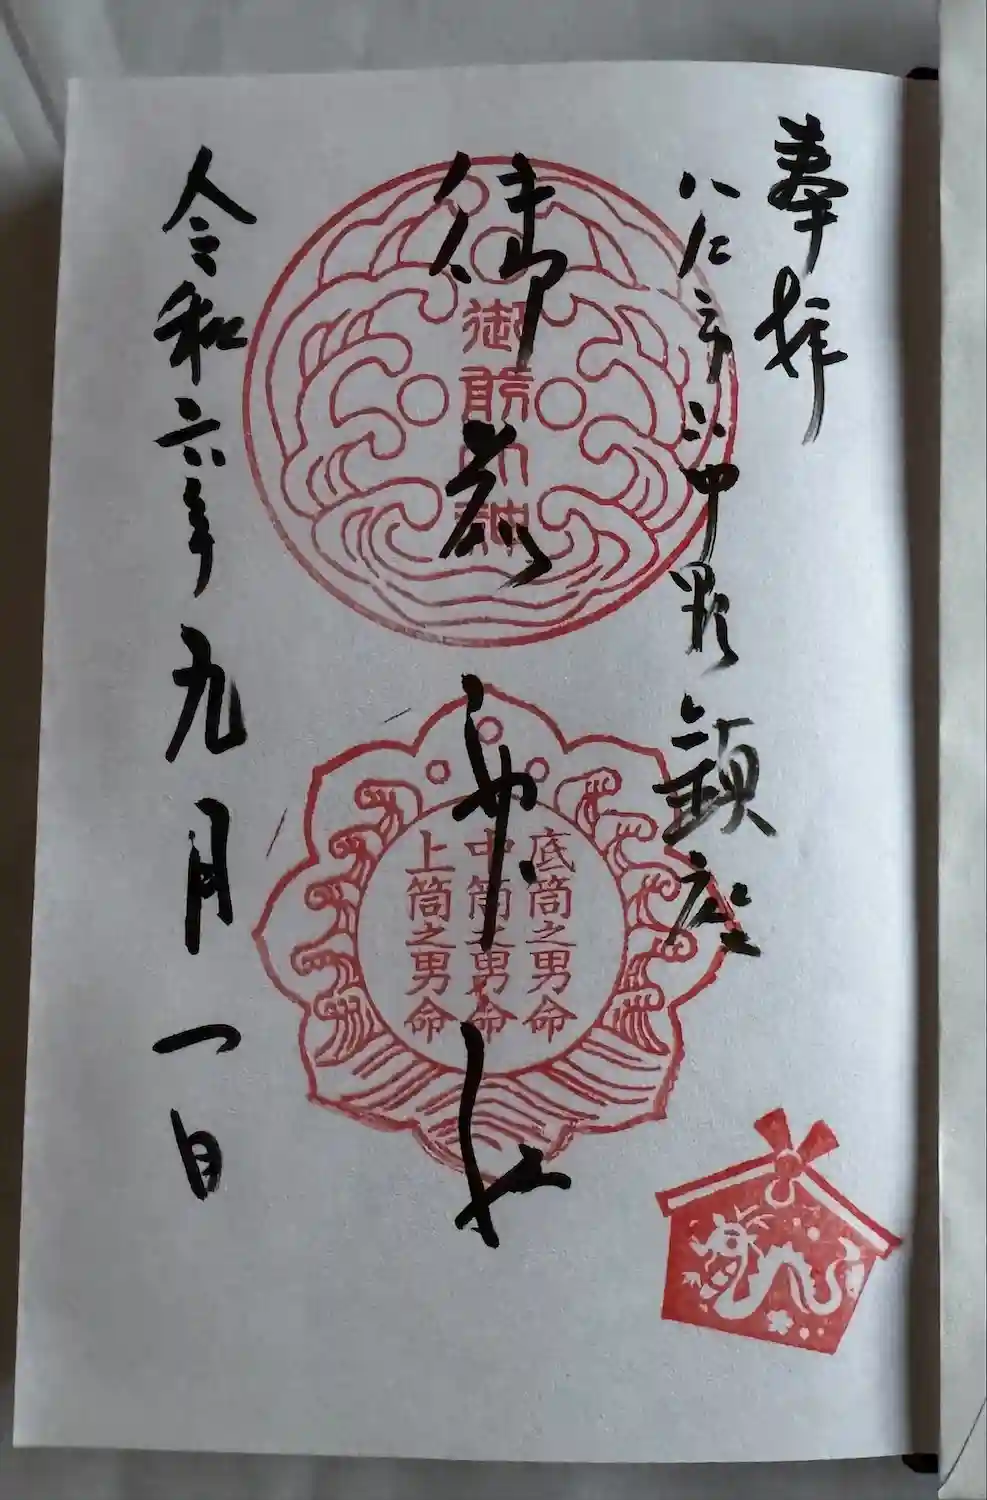 奉拝
八戸市小中野鎮座
御前神社
御前大神
底筒之男命
中筒之男命
上筒之男命
令和六年九月一日